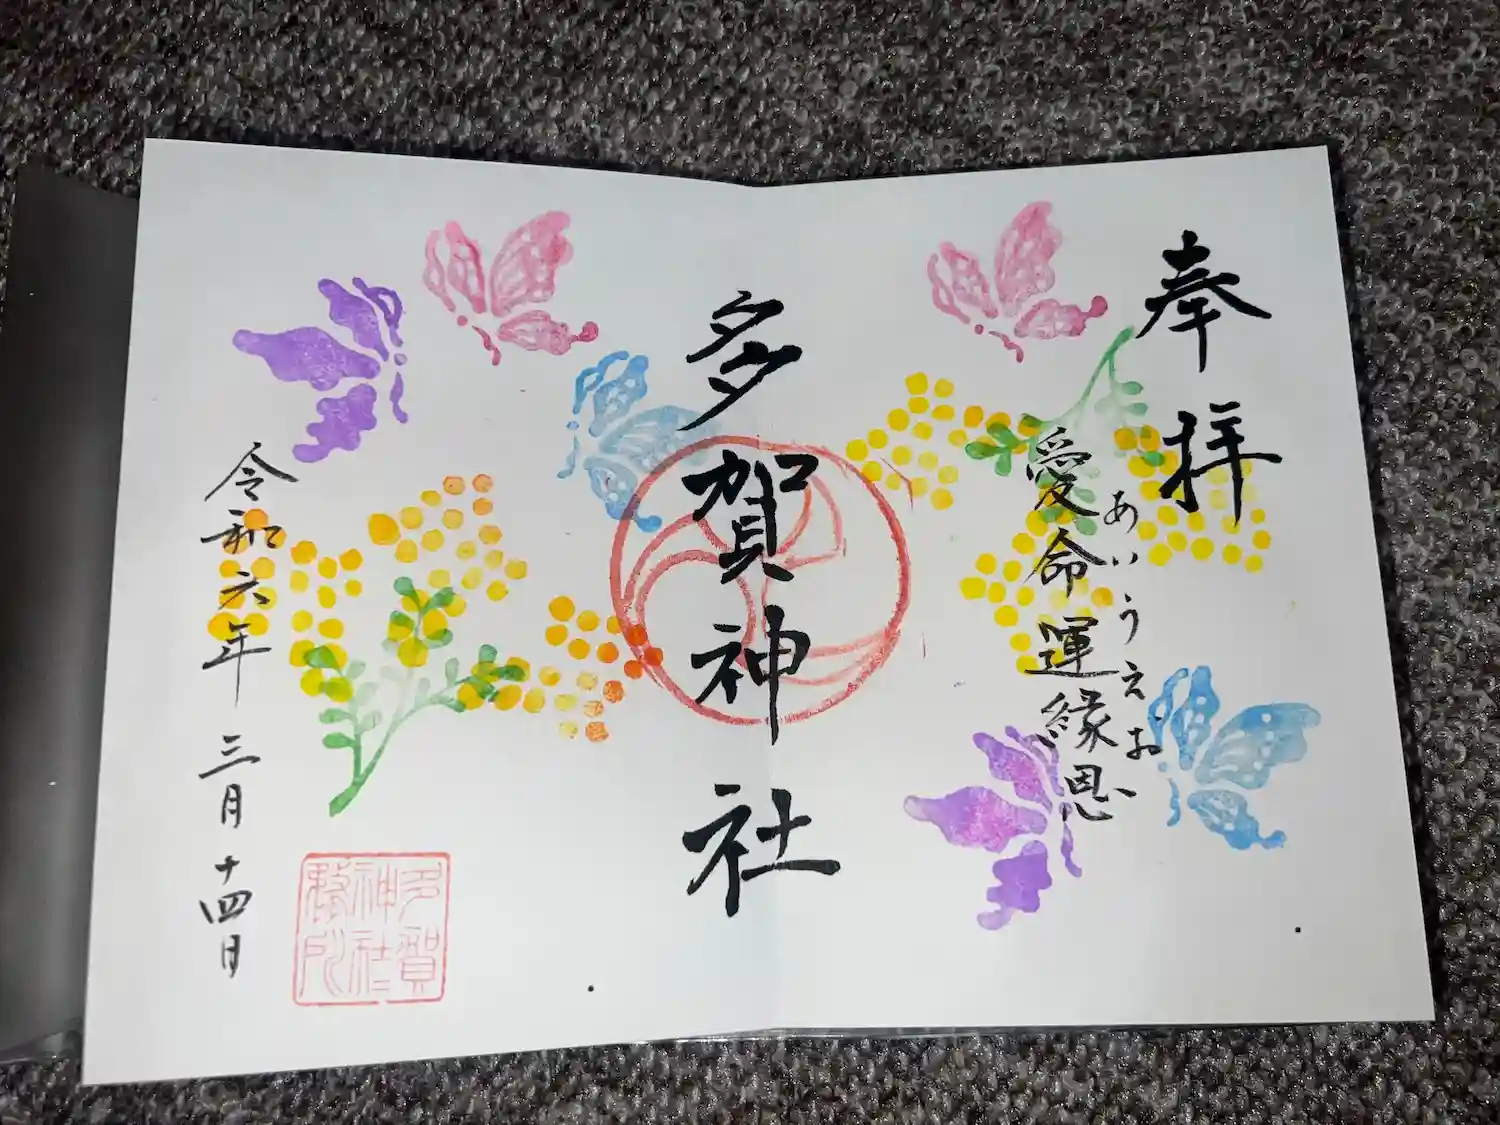 奉拝
あいうえお
愛命運縁恩
多賀神社
令和六年 三月 十四日
多賀
神社